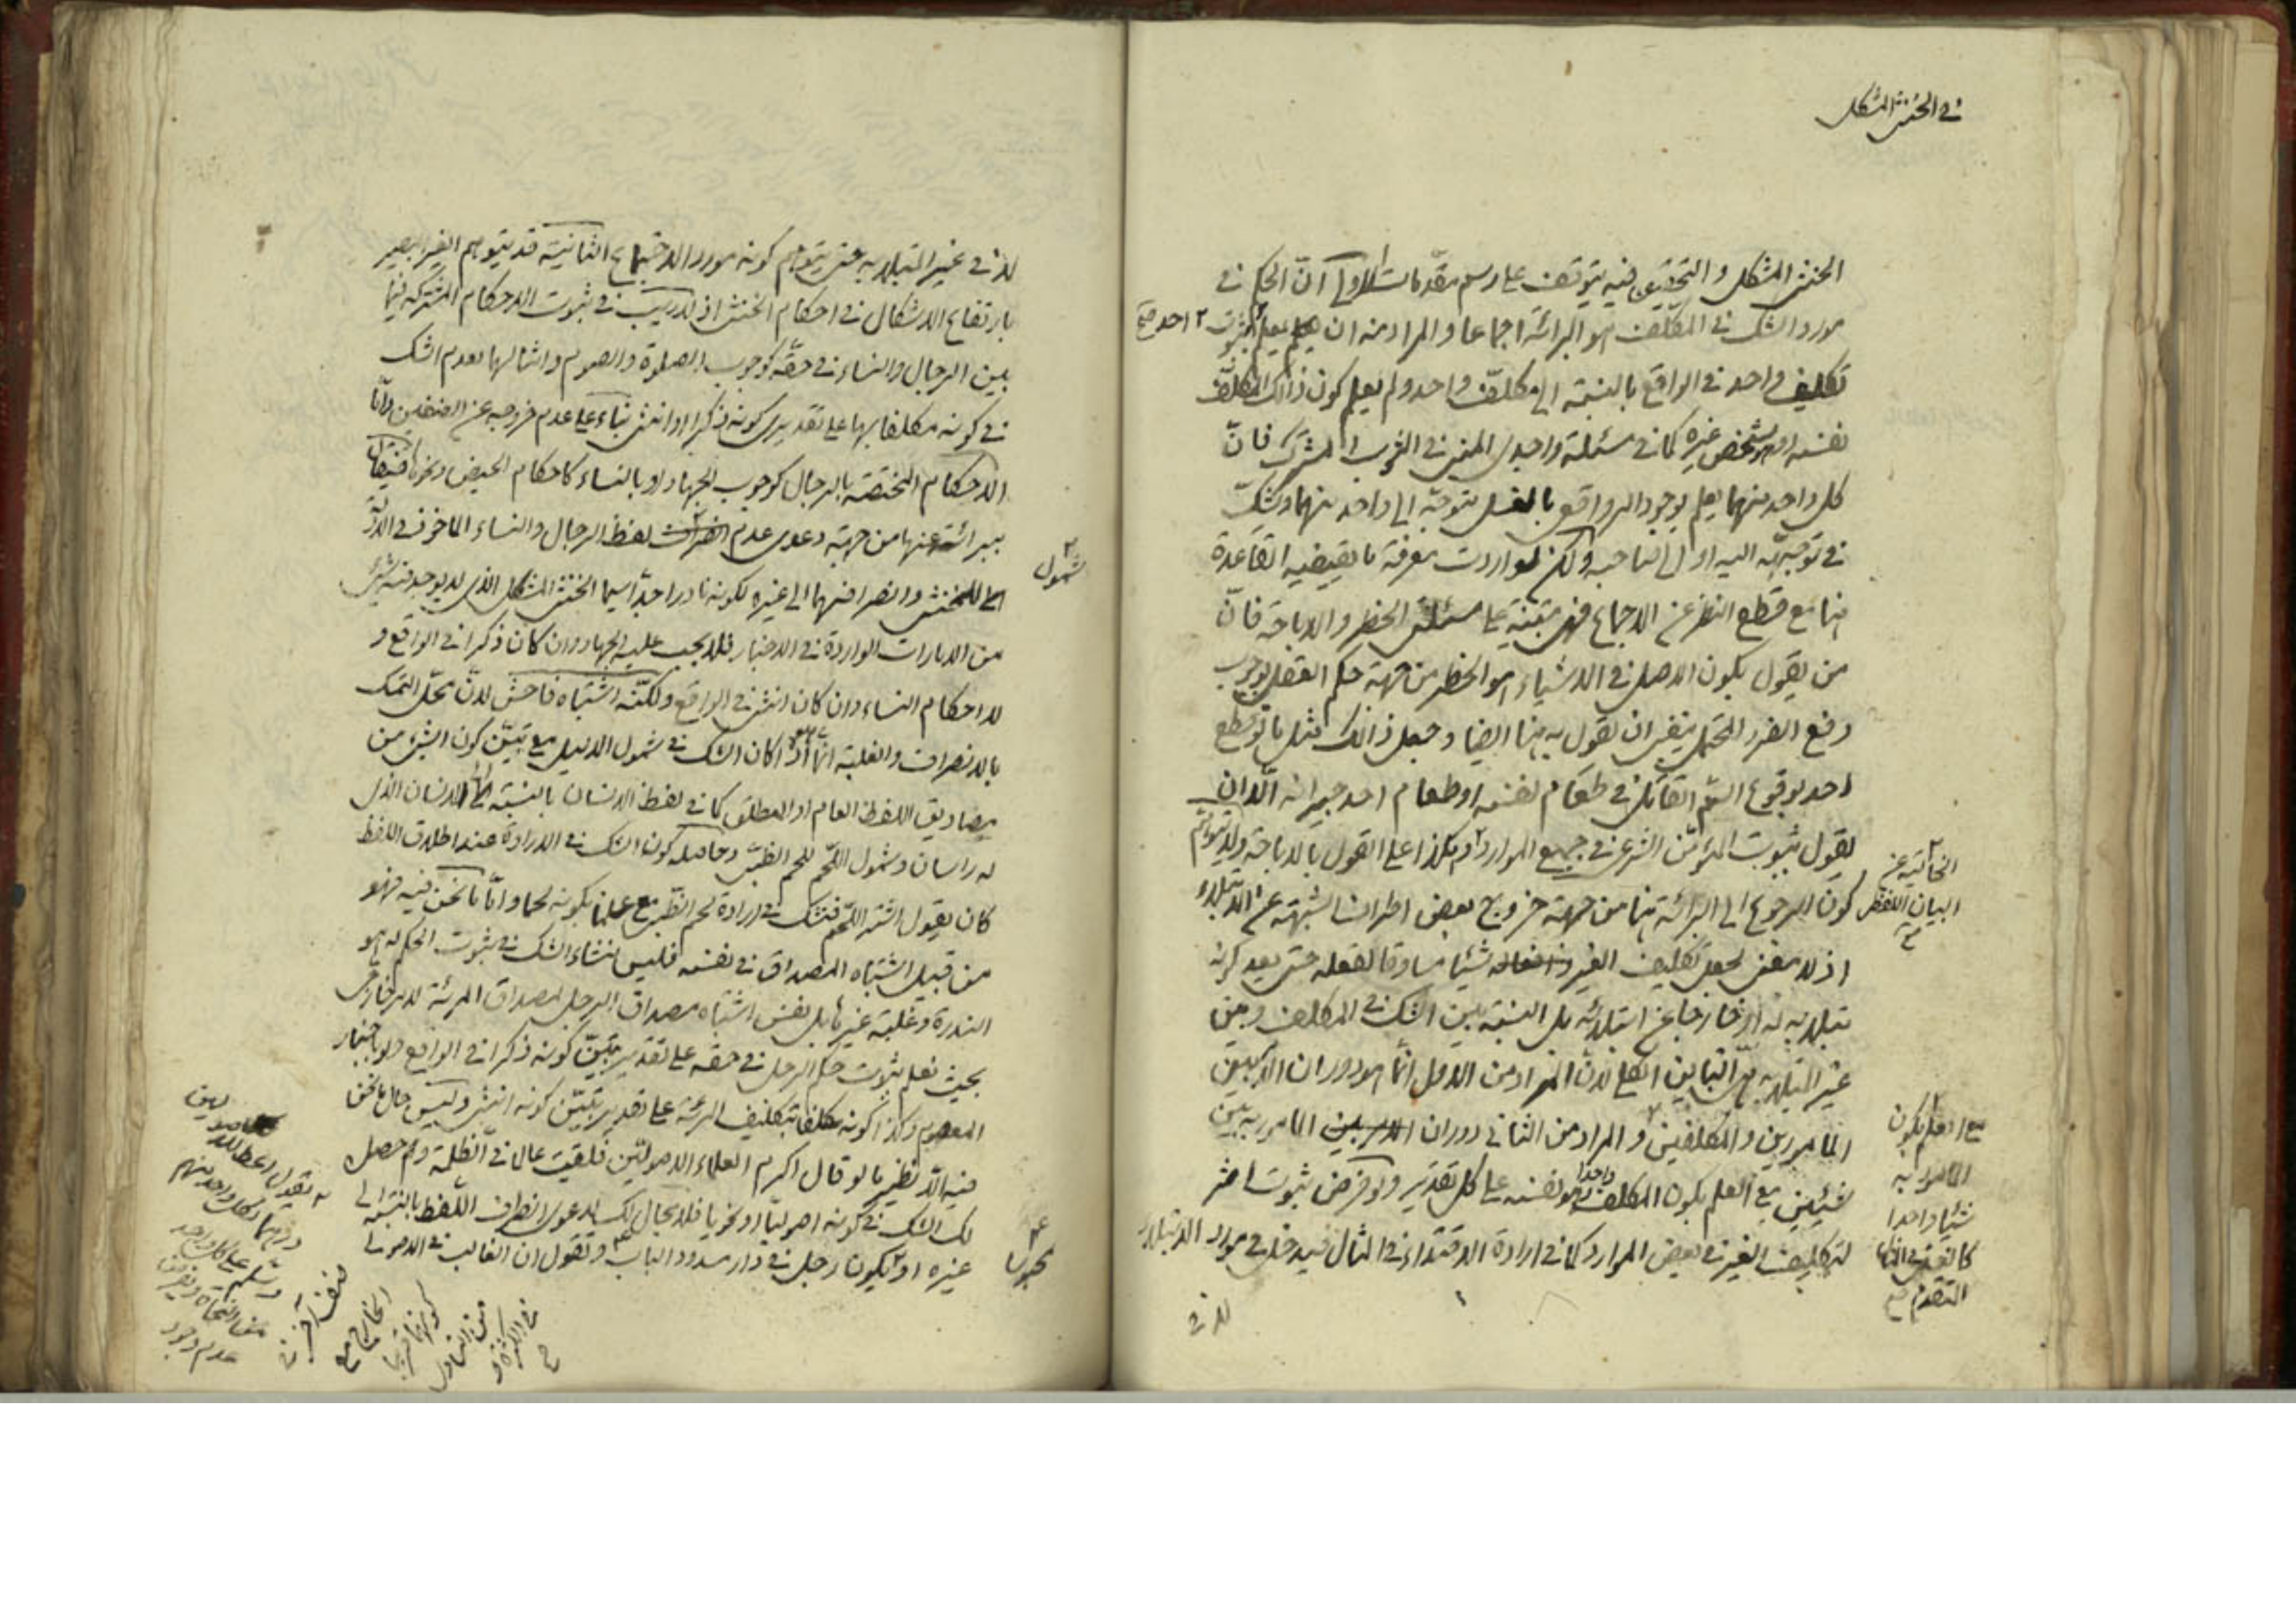 في الخنثى المشكل
الخنثى المشكل والتحقيق فيه يتوقف على رسم مقدمات الاولى ان الحكم في
مورد الشك في المكلف هو البرائة اجماعا والمراد منه ان يعلم بثبوت
تكليف واحد في الواقع بالنسبة الى مكلف واحد ولم يعلم كون ذلك المكلف
نفسه او شخص غيره كما في مسئلة واجدى المنى في الثوب المشترك فان
كل واحد منهما يعلم بوجود امر واقعي بالغسل متوجه الى واحد منهما ويشك
في توجهه اليه او الى صاحبه ولكن لو اردت معرفة ما يقتضيه القاعدة
هنا مع قطع النظر عن الاجماع فهي مبتنية على مسئلة الحظر والاباحة فان
من يقول بكون الاصل في الاشياء هو الحظر من جهة حكم العقل بوجوب
دفع الضرر المحتمل ينبغي ان يقول به هنا ايضا وجعل ذلك مثل ما لو قطع
احد بوقوع السم القاتل في طعام نفسه او طعام احد جيرانه الا ان
يقول بثبوت المؤمن الشرعي في جميع الموارد وهكذا على القول بالاباحة ولا يتوهم
كون الرجوع الى البرائة هنا من جهة خروج بعض اطراف الشبهة عن الابتلاء
اذ لا معنى لجعل تكليف الغير شيئا مساوقا لفعله حتى يعد كونه
مبتلا به له او خارجا عن ابتلائه بل النسبة بين الشك في المكلف وبين
غير المبتلا به هي التباين الكلي لان المراد من الاول انما هو دوران الامر بين
المامورين والمكلفين والمراد من الثاني دوران المامور به بين
شيئين مع العلم بكون المكلف واحدا هو نفسه على كل تقدير ولو فرض ثبوت اثر
لتكليف الغير في بعض الموارد كما في ارادة الاقتداء في المثال فيدخل في موارد الابتلاء
لا في
احد صح
البيان اللفظي
مع العلم بكون
المامور به
شيئا واحدا
المتقدم
لا في غير المبتلا به حتى يتوهم كونه مورد الاجتماع الثانية قد يتوهم الغير البصير
بارتفاع الاشكال في احكام الخنثى اذ لا ريب في ثبوت الاحكام المشتركة فيما
بين الرجال والنساء في حقه كوجوب الصلوة والصوم وامثالهما لعدم الشك
في كونه مكلفا بها على تقديري كونه ذكرا او انثى بناء على عدم خروجه عن الصنفين واما
الاحكام المختصة بالرجال كوجوب الجهاد او بالنساء كاحكام الحيض ونحوها فيقال
ببرائته عنها من جهة دعوى عدم شمول لفظ الرجال والنساء الماخوذ في الادلة
للخنثى وانصرافهما الى غيره لكونه نادرا جدا سيما الخنثى المشكل الذي لا يوجد فيه شئ
من الامارات الواردة في الاخبار فلا يجب عليه الجهاد وان كان ذكرا في الواقع و
لا احكام النساء وان كان انثى في الواقع ولكنه اشتباه فاحش لان محل التمسك
بالانصراف والغلبة انما هو اذا كان الشك في شمول الدليل مع تبين كون الشئ من
مصاديق اللفظ العام او المطلق كما في لفظ الانسان بالنسبة الى الانسان الذي
له راسان وشمول اللحم للحم الظبي وحاصله كون الشك في الارادة عند اطلاق اللفظ
كان يقول اشتر اللحم فتشك في ارادة لحم الظبي مع علمنا بكونه لحما واما ما نحن فيه فهو
من قبيل اشتباه المصداق في نفسه فليس منشاء الشك في ثبوت الحكم له هو
الندرة وغلبة غيرها بل نفس اشتباه مصداق الرجل لمصداق المرئة لامر خارجي
بحيث نعلم بثبوت حكم الرجل في حقه على تقدير تبين كونه ذكرا في الواقع ولو باخبار
المعصوم وكذا كونه مكلفا بتكليف المرئة على تقدير تبين كونه انثى وليس حال ما نحن
فيه الا نظير ما لو قال اكرم العلماء الاصوليين فلقيت عالما في الظلمة ولم حصل
لك الشك في كونه اصوليا او نحويا فلا مجال لك لدعوى انصراف اللفظ بالنسبة الى
غيره او يكون رجل في دار مسدود الباب وتقول ان الغالب في الاصولي
شمول
محبوسا